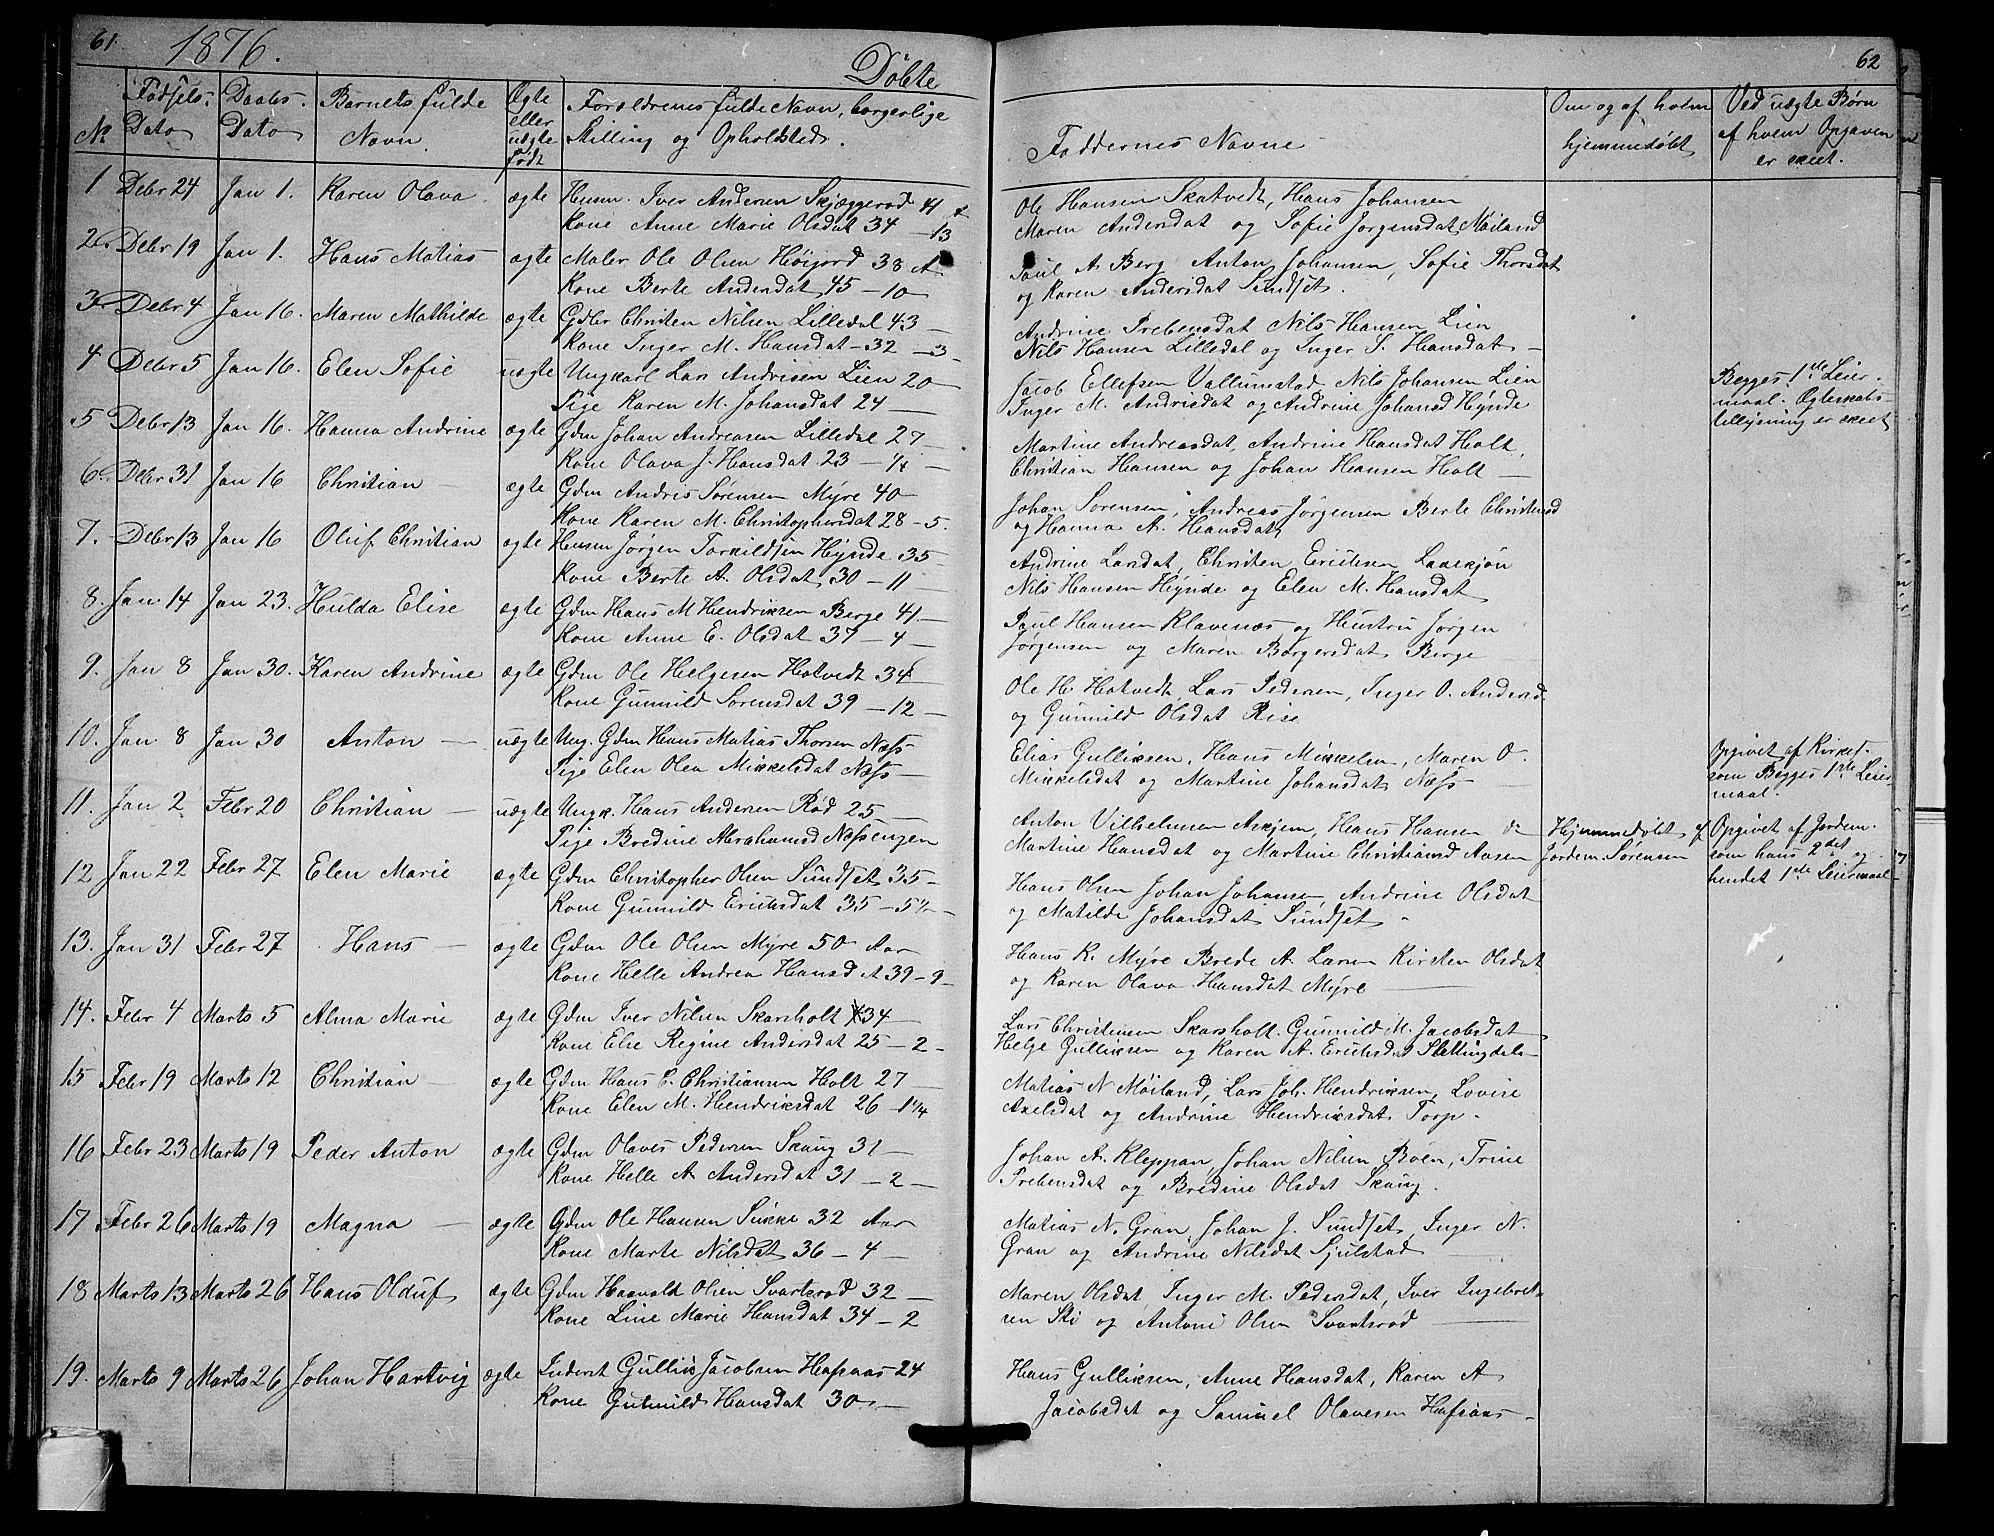 61
1876.
Døbte
No
Fødsels-
Dato
Daabs-
Dato
Barnets fulde
Navn.
Ægte
eller
uægte
født
Forældrenes fulde Navn, borgerlige
Stilling og Opholdsted.
1 Debr 24 Jan 1. Karen Olava ægte Husm. Iver Andersen Skjæggerød 41
Kone Anne Marie Olsdat 34 — 13
2 Debr 19 Jan 1. Hans Matias ægte Maler Ole Olsen Høigord 38
Kone Berte Andersdat 45 — 10
3 Debr 4 Jan 16. Maren Mathilde ægte Gdbr Christen Nilsen Lilledal 43 —
Kone Inger M. Hansdat — 32 — 3 —
4 Debr 5 Jan 16. Elen Sofie uægte Ungkarl Lars Andrisen Lien 20 —
Pige Karen M. Johansdat 24 —
5 Debr 13 Jan 16. Hanna Andrine ægte Gdm Johan Andreasen Lilledal 27 —
Kone Olava J. Hansdat 23 — 1/4 —
6 Debr 31 Jan 16 Christian — ægte Gdm Andris Sørensen Myre 40 —
Kone Karen M. Christophersdat 28 — 5.
7. Debr 13 Jan 16 Oluf Christian ægte Husm Jørgen Torkildsen Hynde 35 —
Kone Berte A. Olsdat 30 — 11 —
8. Jan. 14 Jan 23. Hulda Elise ægte Gdm Hans M Hendriksen Berge 41 —
Kone Anne E. Olsdat 37 — 4 —
9. Jan 8 Jan 30. Karen Andrine ægte Gdm Ole Helgesen Hotvedt 34
Kone Gunnild Sørensdat 39 — 12 —
10. Jan 8 Jan 30 Anton — uægte Ung. Gdm Hans Matias Thorsen Næss
Pige Elen Olea Mikkelsdat Næss —
11. Jan 2 Febr 20 Christian — uægte Ungk. Hans Andersen Rød 25 —
Pige Bredine Abrahamsd Næssengen
12 Jan 22 Febr 27 Elen Marie ægte Gdm Christopher Olsen Sundset 35 —
Kone Gunnild Erichsdat 35 — 5 1/2 —
13. Jan 31 Febr 27 Hans — ægte Gdm Ole Olsen Myre 50 Aar
Kone Helle Andrea Hansdat 39 — 9 —
14. Febr 4 Marts 5 Alma Marie ægte Gdm Iver Nilsen Skarsholt 34 —
Kone Else Regine Andersdat 25 — 2 —
15 Febr 19 Marts 12 Christian — ægte Gdm Hans C. Christiansen Holt 27
Kone Elen M. Hendriksdat 26 — 1 1/4
16 Febr 23 Marts 19 Peder Anton ægte Gdm Olaves Pedersen Skaug 31 —
Kone Helle A. Andersdat 31 — 2 —
17 Febr 26 Marts 19 Magna — ægte Gdm Ole Hansen Sukke 32 Aar
Kone Marte Nilsdat 36 — 4 —
18 Marts 13 Marts 26 Hans Olduf ægte Gdm Haavald Olsen Svartsrød 32 —
Kone Line Marie Hansdat 34 — 2
19. Marts 9 Marts 26 Johan Hartvig ægte Inderst Gullik Jacobsen Hafsaas 24
Kone Gubnild Hansdat 30 —
62
Faddernes Navne
Om og af hvem
hjemmedøbt
Ved uægte Børn
af hvem Opgaven
er skeet.
Ole Hansen Skatvedt, Hans Johansen
Maren Andersdat og Sofie Jørgensdat Møiland
Paul A. Berg Anton Johansen, Sofie Thorsdat
og Karen Andersdat Sundset.
Andrine Prebensdat Nils Hansen Lien
Nils Hansen Lilledal og Inger S. Hansdat —
Jacob Ellefsen Vallumstad, Nils Johansen Lien
Inger M. Andrisdat og Andrine Johansd Hynde
Begges 1ste Leier-
maal. Ægteskabs-
tillysning er skeet
Martine Andreasdat, Andrine Hansdat Holt,
Christian Hansen og Johan Hansen Holt —
Johan Sørensen, Andreas Jørgensen Berte Christensd
og Hanna A. Hansdat
Andrine Larsdat, Christen Erichsen Laaskjøn
Nils Hansen Hynde og Elen M. Hansdat
Paul Hansen Klavenæs og Hustru Jørgen
Jørgensen og Maren Borgersdat Berge
Ole H. Hotvedt, Lars Pedersen, Inger O. Andersd
og Gunnild Olsdat Rise
Elias Gulliksen, Hans Mikkelsen, Maren O.
Mikkelsdat og Martine Johansdat Næss —
Opgivet af Kirkes.
som Begges 1ste Leier-
maal.
Anton Vilhelmsen Askjem, Hans Hansen do
Martine Hansdat og Martine Christiansd Aasen
Hjemmedøbt af
Jordem. Sørensen
Opgivet af Jordem.
som hans 2det og
hendes 1ste Leiermaal —
Hans Olsen Johan Johansen, Andrine Olsdat
og Matilde Johansdat Sundset —
Hans K. Myre Brede A. Larsen Kirsten Olsdat
og Karen Olava Hansdat Myre —
Lars Christensen Skarsholt. Gunnild M. Jacobsdat
Helge Gulliksen og Karen A. Erichsdat Slettingdalen
Matias N. Møiland, Lars Joh. Hendriksen, Lovise
Axelsdat og Andrine Hendriksdat Torp.
Johan A. Kleppan, Johan Nilsen Bøen, Trine
Prebensdat og Bredine Olsdat Skaug.
Matias N. Gran, Johan J. Sundset, Inger N.
Gran og Andrine Nilsdat Sjulstad —
Maren Olsdat, Inger M. Pedersdat, Iver Ingebret-
sen Ski og Antoni Olsen Svartsrød —
Hans Gulliksen, Anne Hansdat, Karen A
Jacobsdat og Samuel Olavesen Hafsaas —